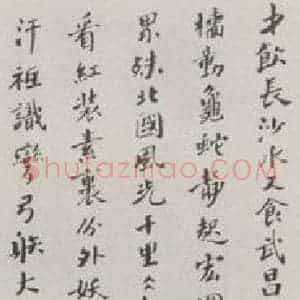 才飲長沙水又食武昌
檣動龜蛇靜起宏
界殊北國風光千里
看紅裝素裹份外妖
汗祗識彎弓射大
Shufaziliao.com